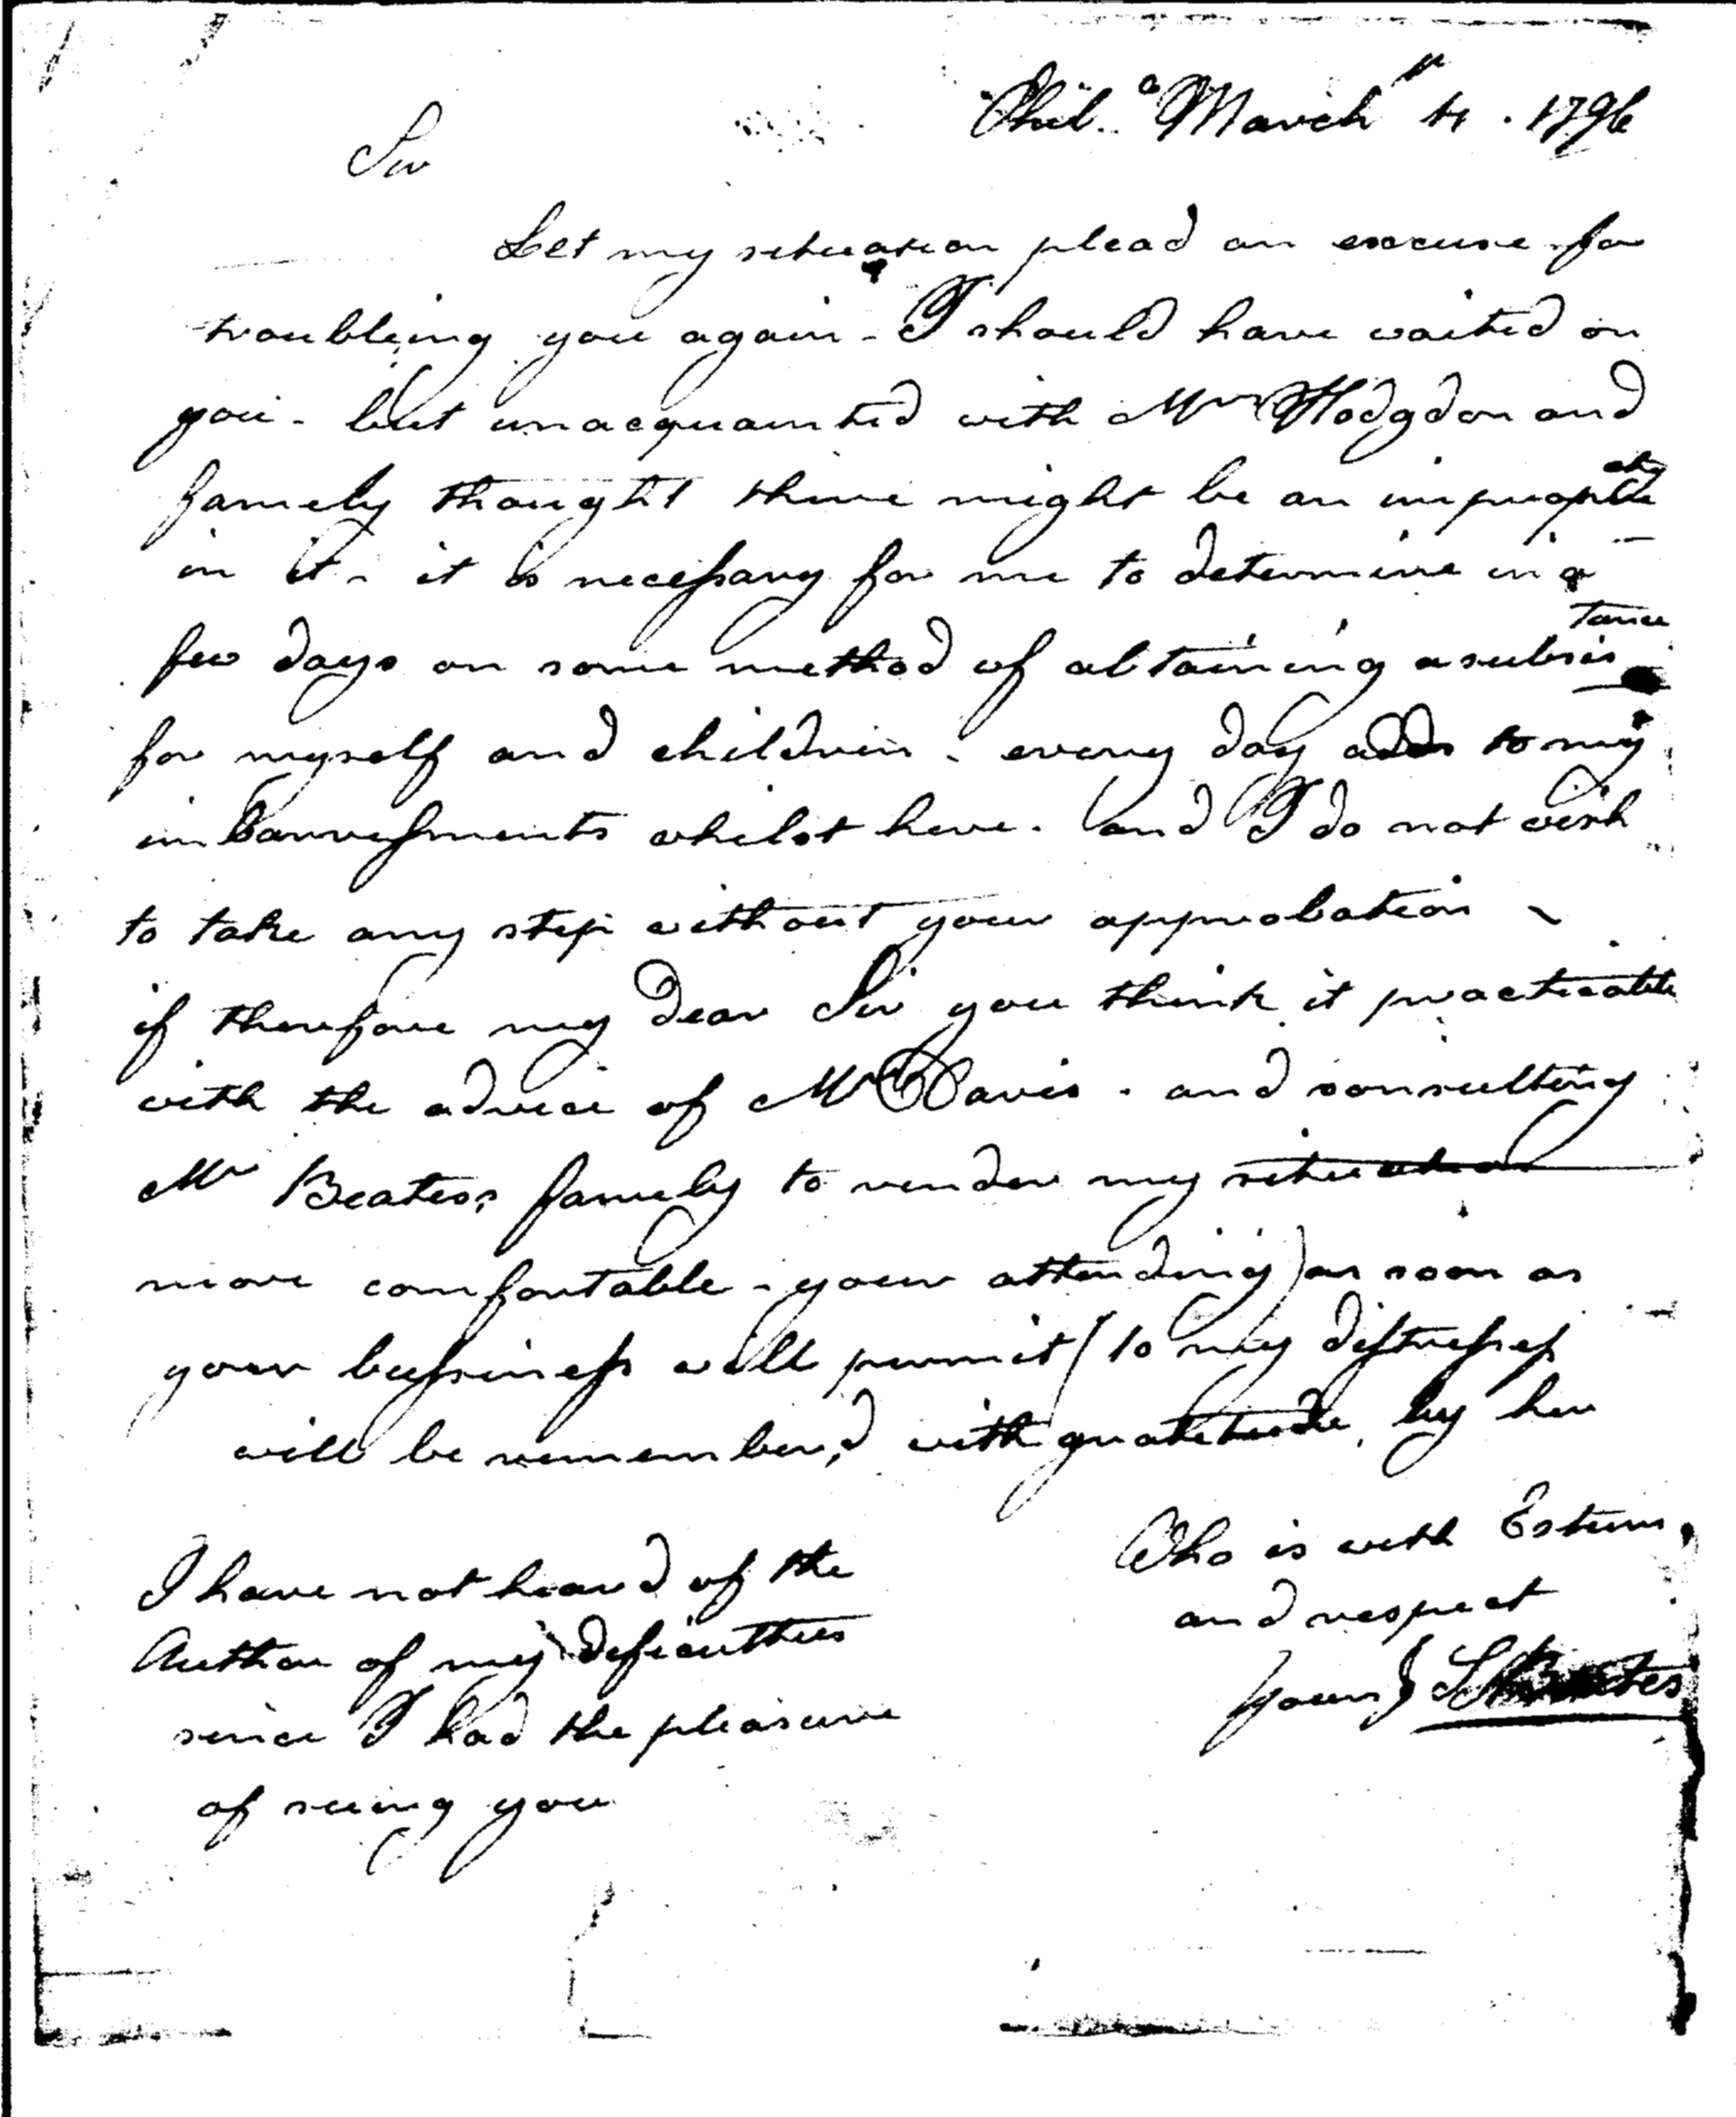 Phil.a March 4th. 1796
Sir
Let my situation plead an excuse for
troubling you again - I should have waited on
you - but unacquainted with Mrs Hodgdon and
family thought there might be an improp
ety
in it - it is necessary for me to determine in a
few days on some method of obtaining a subsis
tance
for myself and children - every day adds to my
imbarressments whilst here. and I do not wish
to take any step without your approbation -
if therefore my Dear Sir you think it practicable
with the advice of Mr Davis. and consulting
Mr Beates's family to render my situation
more comfortable - your attending) as soon as
your bussiness will permit ( to my distresses
will be remember,d with gratitude, by her
Who is with Esteem,
and respect
yours S Beates
I have not heard of the
Author of my deficulties
since I had the pleasure
of seeing you